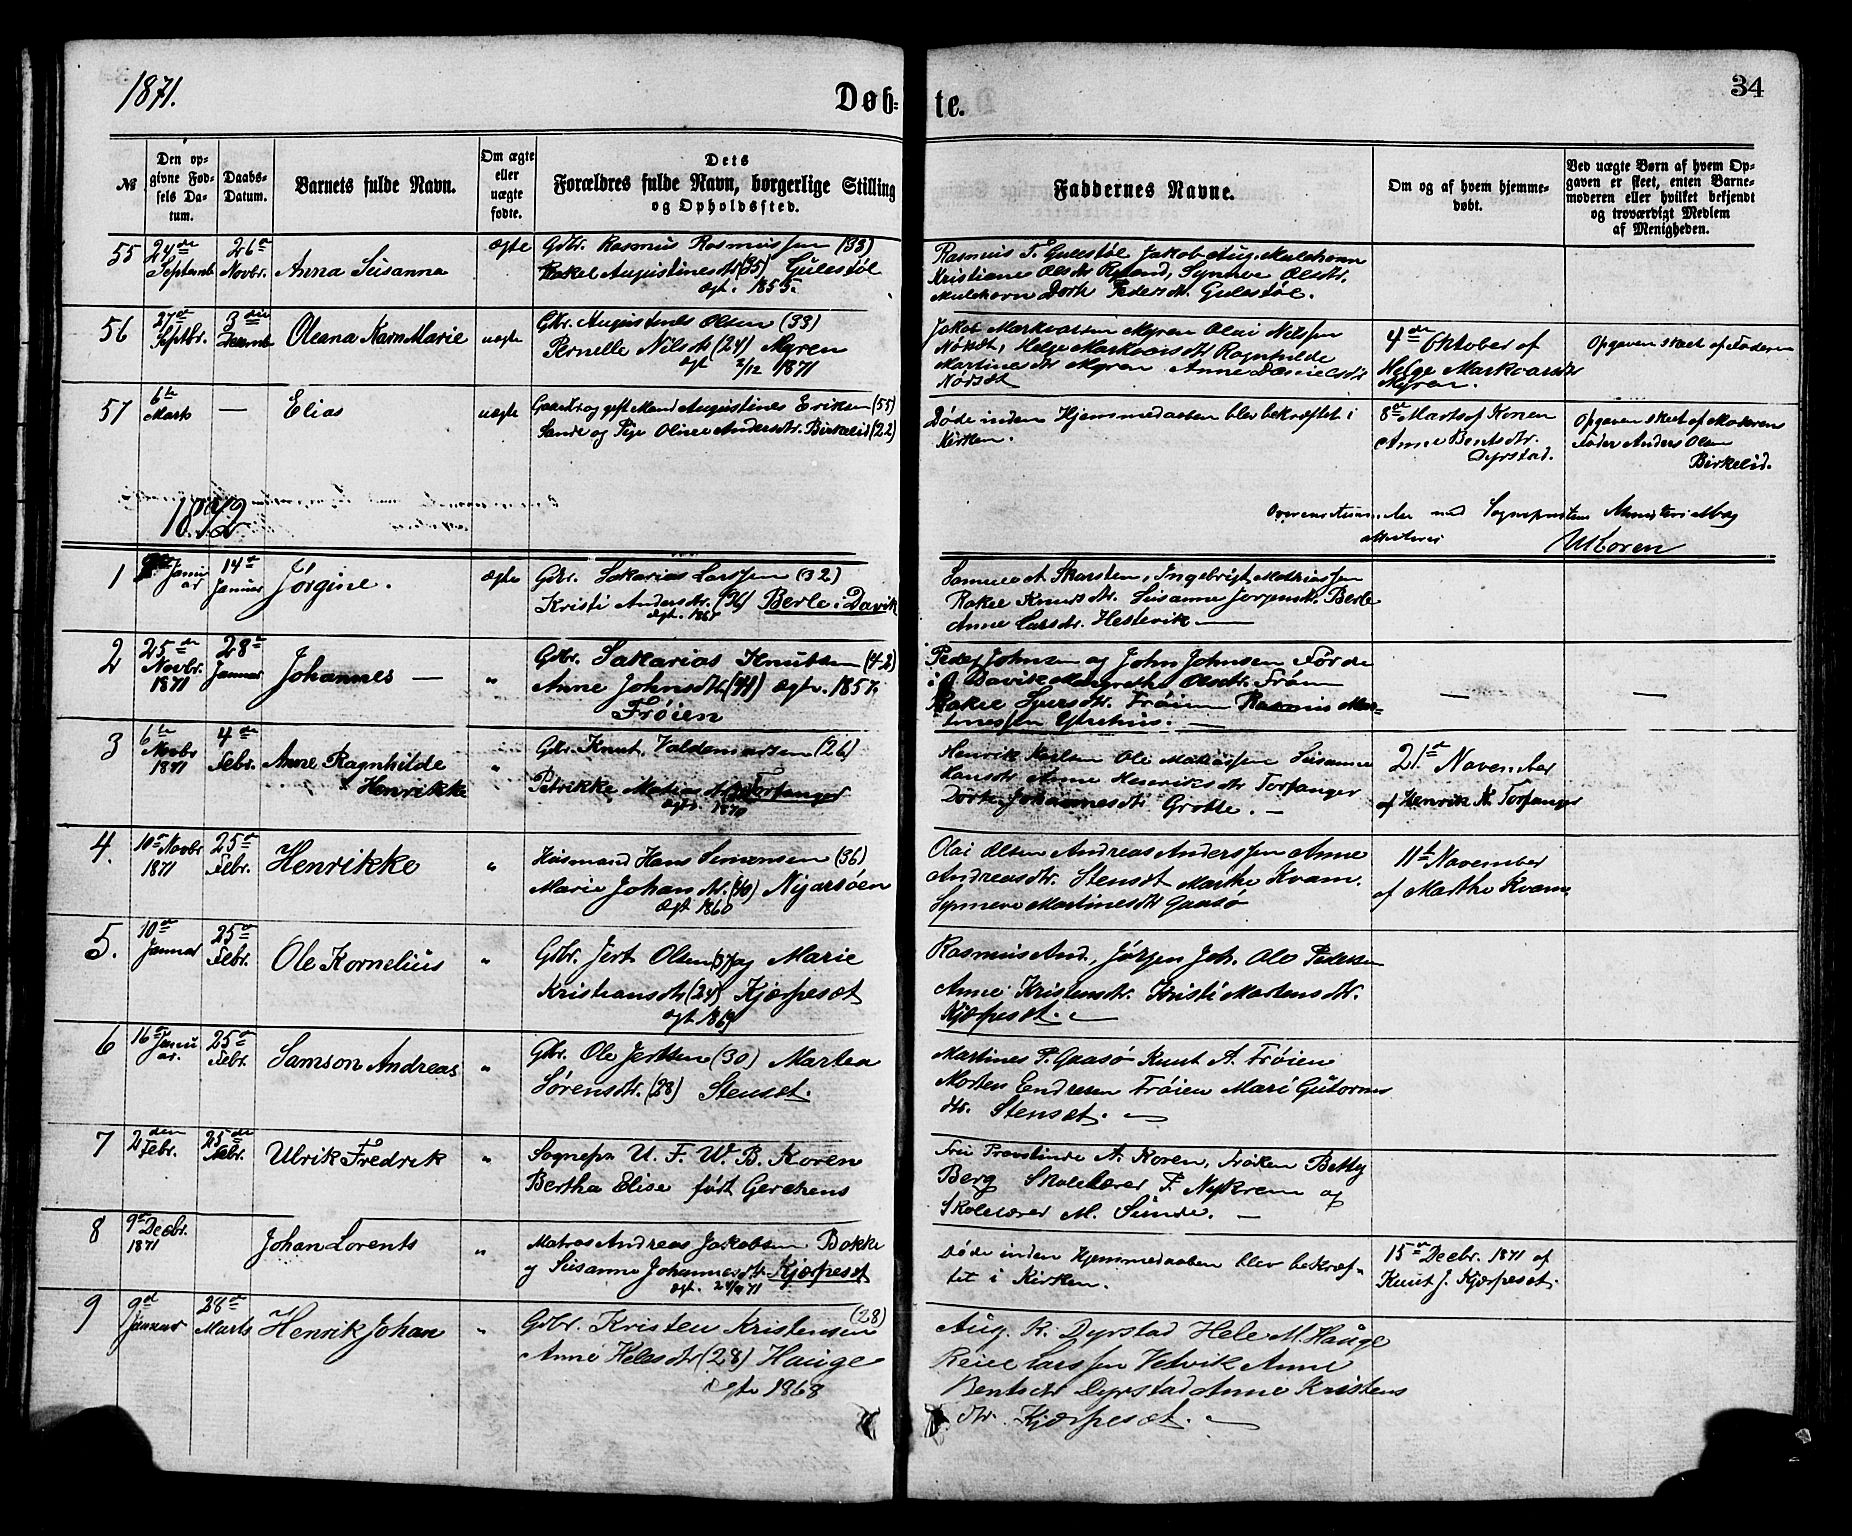 1871.
Døb-
te.
34
№
Den op-
givne Fød-
sels Da-
tum.
Daabs-
Datum.
Barnets fulde Navn.
Om ægte
eller
uægte
fødte.
Dets
Forældres fulde Navn, borgerlige Stilling
og Opholdssted.
Faddernes Navne.
Om og af hvem hjemme-
døbt.
Ved uægte Børn af hvem Op-
gaven er skeet, enten Barne-
moderen eller hvilket bekjendt
og troværdigt Medlem
af Menigheden.
55
24de
Septemb
26de
Novbr.
Anna Susanna
ægte
Gdbr. Rasmus Rasmussen (33)
Rakel Augustinesdtr (35) Gulestøl
ægt. 1855.
Rasmus T. Gulestøl Jakob Aug. Mulehavn
Kristiane Olsdtr Ryland, Synneve Olsdtr.
Mulehavn Dorte Pedersdtr. Gulestøl.
56
27de
Septbr.
3die
Decemb
Oleana Karn Marie
uægte
Gbr. Augustinus Olsen (33)
Pernelle Nilsdtr (24) Myren
ægt 2/12 1871
Jakob Markvarsen Myren Olai Nilssen
Nødset, Helge Markvarsdtr Ragnhilde
Martinesdtr Myren Anne Danielsdtr
Nødset
4de Oktober af
Helge Markvarsdtr
Myren.
Opgaven skeet af Faderen
57
6te
Mark
—
Elias
uægte
Gaardbr og gift Mand Augustines Eriksen (55)
Sande og Pige Oline Andersdtr. Birkelid (22)
Døde inden Hjemmedaaben blev bekræftet i
Kirken.
8de Marts af Konen
Anne Bentsdtr.
Dyrstad.
Opgaven skeet af Moderens
Fader Anders Olsen
Birkelid.
1872
Overensstemmelse med Sognepræstens Ministerialbog
attesteres
UKoren
1
Janu
ar
14de
Januar
Jørgine.
ægte
Gdbr. Sakarias Larssen (32)
Kristi Andersdtr. (36) Berle i Davik
ægt. 1865
Samuel A Skarsten, Ingebrigt Mathiassen
Rakel Knudsdtr. Susanne Jørgensdtr. Berle
Anne Larsdtr. Hestevik —
2
25de
Novbr.
1871
28de
Januar
Johannes —
"
Gdbr. Sakarias Knutsen (42)
Anne Johnsdtr. (41) ægtv. 1857.
Frøien
Peder Johnsen og John Johnsen Førde
i Davik Margrethe Olsdtr. Frøien
Rakel Sjursdtr. Frøien Rasmus Mar-
tinessen Ytrehus. —
—
—
3
6te
Novbr
1871
4de
Febr.
Anne Ragnhilde
Henrikke
"
Gdbr. Knut Valdemarsen (26)
Petrikke Matiasdtr Torfanger
ægtv. 1870
Henrik Karlsen Ole Mathiassen Susanne
Hansdtr Anne Henriksdtr Torfanger
Dorte Johannesdtr Grotle. —
21de November
af Henrik K. Torfanger
4.
10de Novbr
1871
25de
Febr.
Henrikke
"
Husmand Hans Simonsen (36)
Marie Johandtr. (40) Nyarsøen
ægt 1860
Olai Olsen Andreas Anderssen Anne
Andreasdtr. Stenset Marthe Kvam.
Synneve Martinesdtr Gaasø
11te November
af Marthe Kvam
5.
10de
Januar
25de
Febr.
Ole Kornelius
"
Gdbr. Jert Olsen (37) og Marie
Kristiansdtr (24) Kjærpeset
ægt. 1869
Rasmus And., Jørgen Joh. Ole Pedersen
Anne Kristensdtr. Kristi Martensdtr.
Kjærpeset. —
6
16de Janu
ar.
25de
Febr.
Samson Andreas
"
Gbr. Ole Jertsen (30) Martea
Sørensdtr. (28) Stenset.
Martines P. Gaasø Knut A. Frøien
Morten Endresen Frøien Mari Gutorms
dtr. Stenset. —
7
2den
Febr.
25de
Febr.
Ulrik Fredrik
"
Sognepr. U. F. W. B. Koren
Bertha Elise født Gerckens
Fru Provstinde A. Koren, Frøken Betty
Berg Skolelærer P. Nykrem og
Skolelærer M. Sunde. —
8
9de Decbr.
1871
Johan Lorents
"
Matros Andreas Jakobsen Bakke
og Susanne Johannesdtr. Kjærpeset
ægt. 24/9 71
Døde inden Hjemmedaaben blev bekræf-
tet i Kirken.
15de Decbr. 1871 af
Knut J. Kjærpeset.
9
9de
Januar
28de
Marts
Henrik Johan
"
Gdbr. Kristen Kristensen (28)
Anne Helesdtr (28) Hauge
ægtv 1868
Aug. R. Dyrstad Hele M. Hauge
Reiel Larssen Vetvik Anne
Bentsdtr Dyrstad Anne Kristens
dtr. Kjærpeset. —